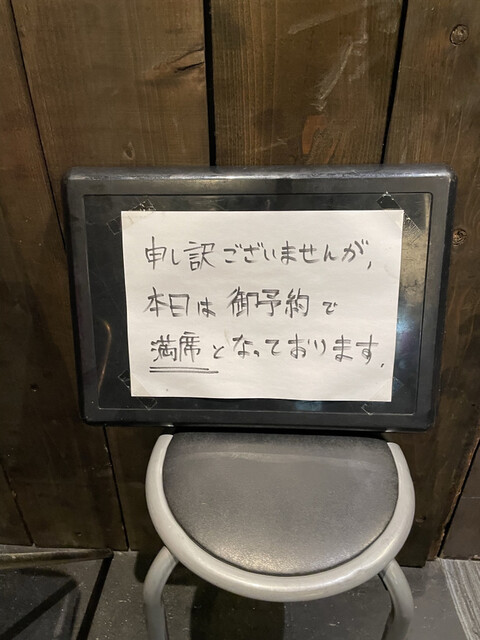 申し訳ございませんが,
本日は御予約で
満席となっております.